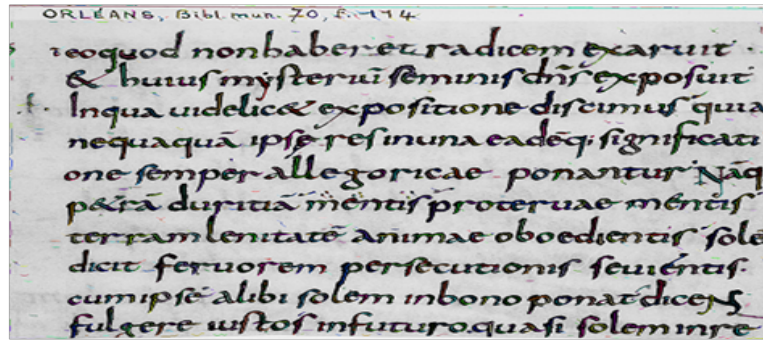 ORLÉANS, Bibl. mun. 70, f. 114
eoquod non haberet radicem exaruit ·
& huius mysteriū seminis dn̄s exposuit
In qua uidelic& expositione discimus quia
nequaquā ipse res in una eadēq; significati
one semper allegoricae ponantur Nāq
p&rā duritiā mentis proteruae mentis
terram lenitatē animae oboedientis sole
dicit feruorem persecutionis seuientis·
cum ipse alibi solem in bono ponat dicens
fulgere iustos in futuro quasi solem in re